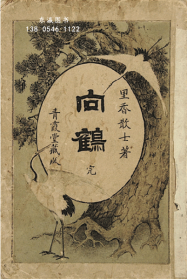 东瀛图书
138 0546 1122
里香散士著
向鶴
完
青霞堂藏版